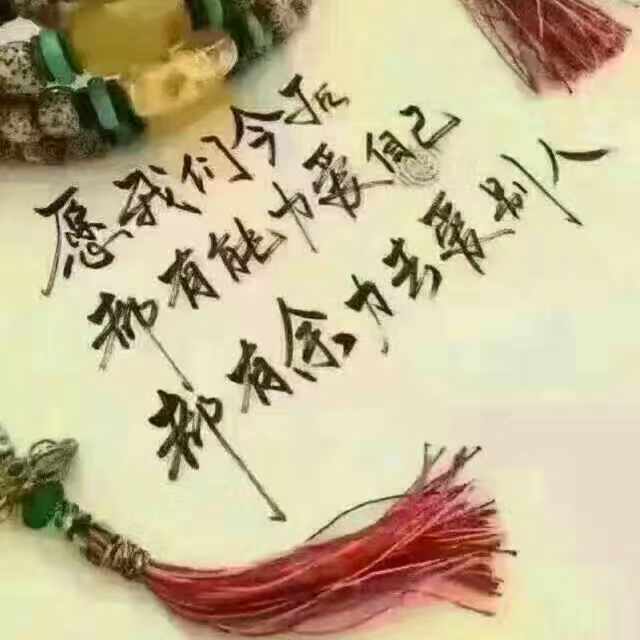 愿我们今后
都有能力爱自己
都有余力去爱别人